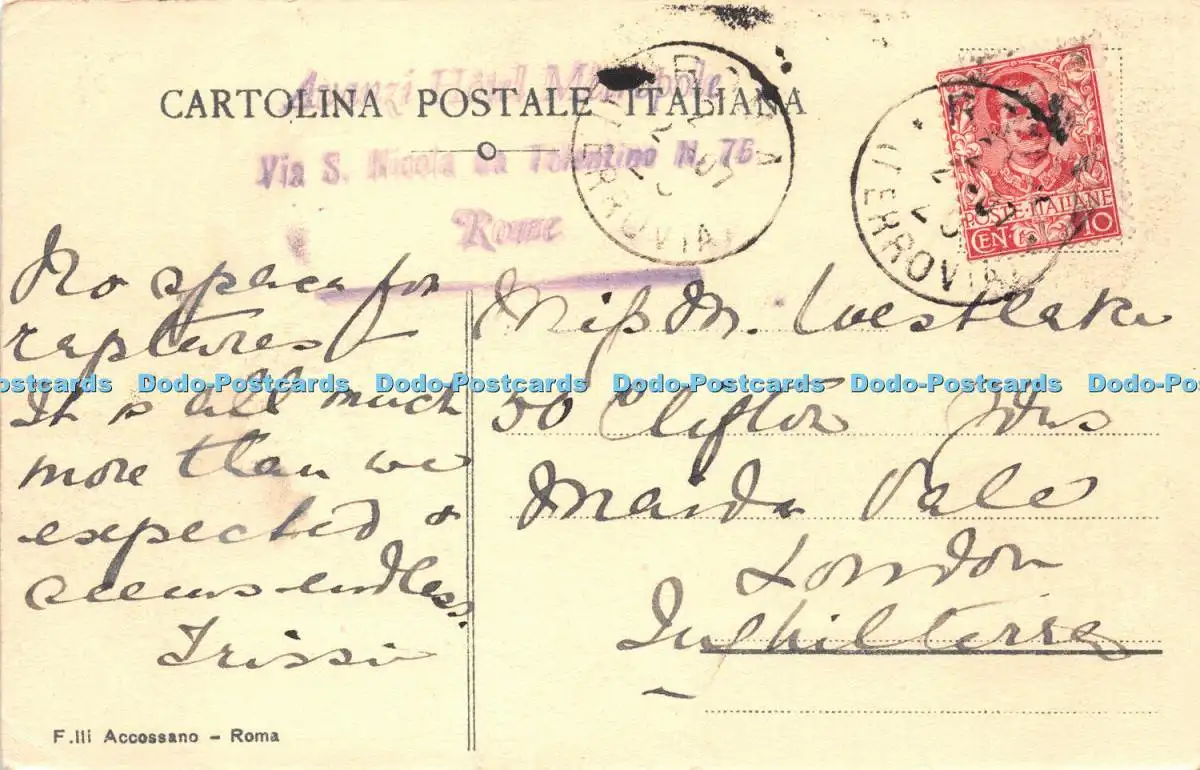 CARTOLINA POSTALE ITALIANA
Hôtel
Via S. Nicola da Tolentino N. 76
Rome
ROMA
FERROVIA
ROMA
FERROVIA
POSTE·ITALIANE
CEN· 10
No space for
raptures
It is all much
more than we
expected &
seems endless.
Trissie
Miss M. Westlake
50 Clifton Gdns
Maida Vale
London
Inghilterra
Dodo-Postcards Dodo-Postcards Dodo-Postcards Dodo-Postcards Dodo-Postcards Dodo-Po
F.lli Accossano - Roma